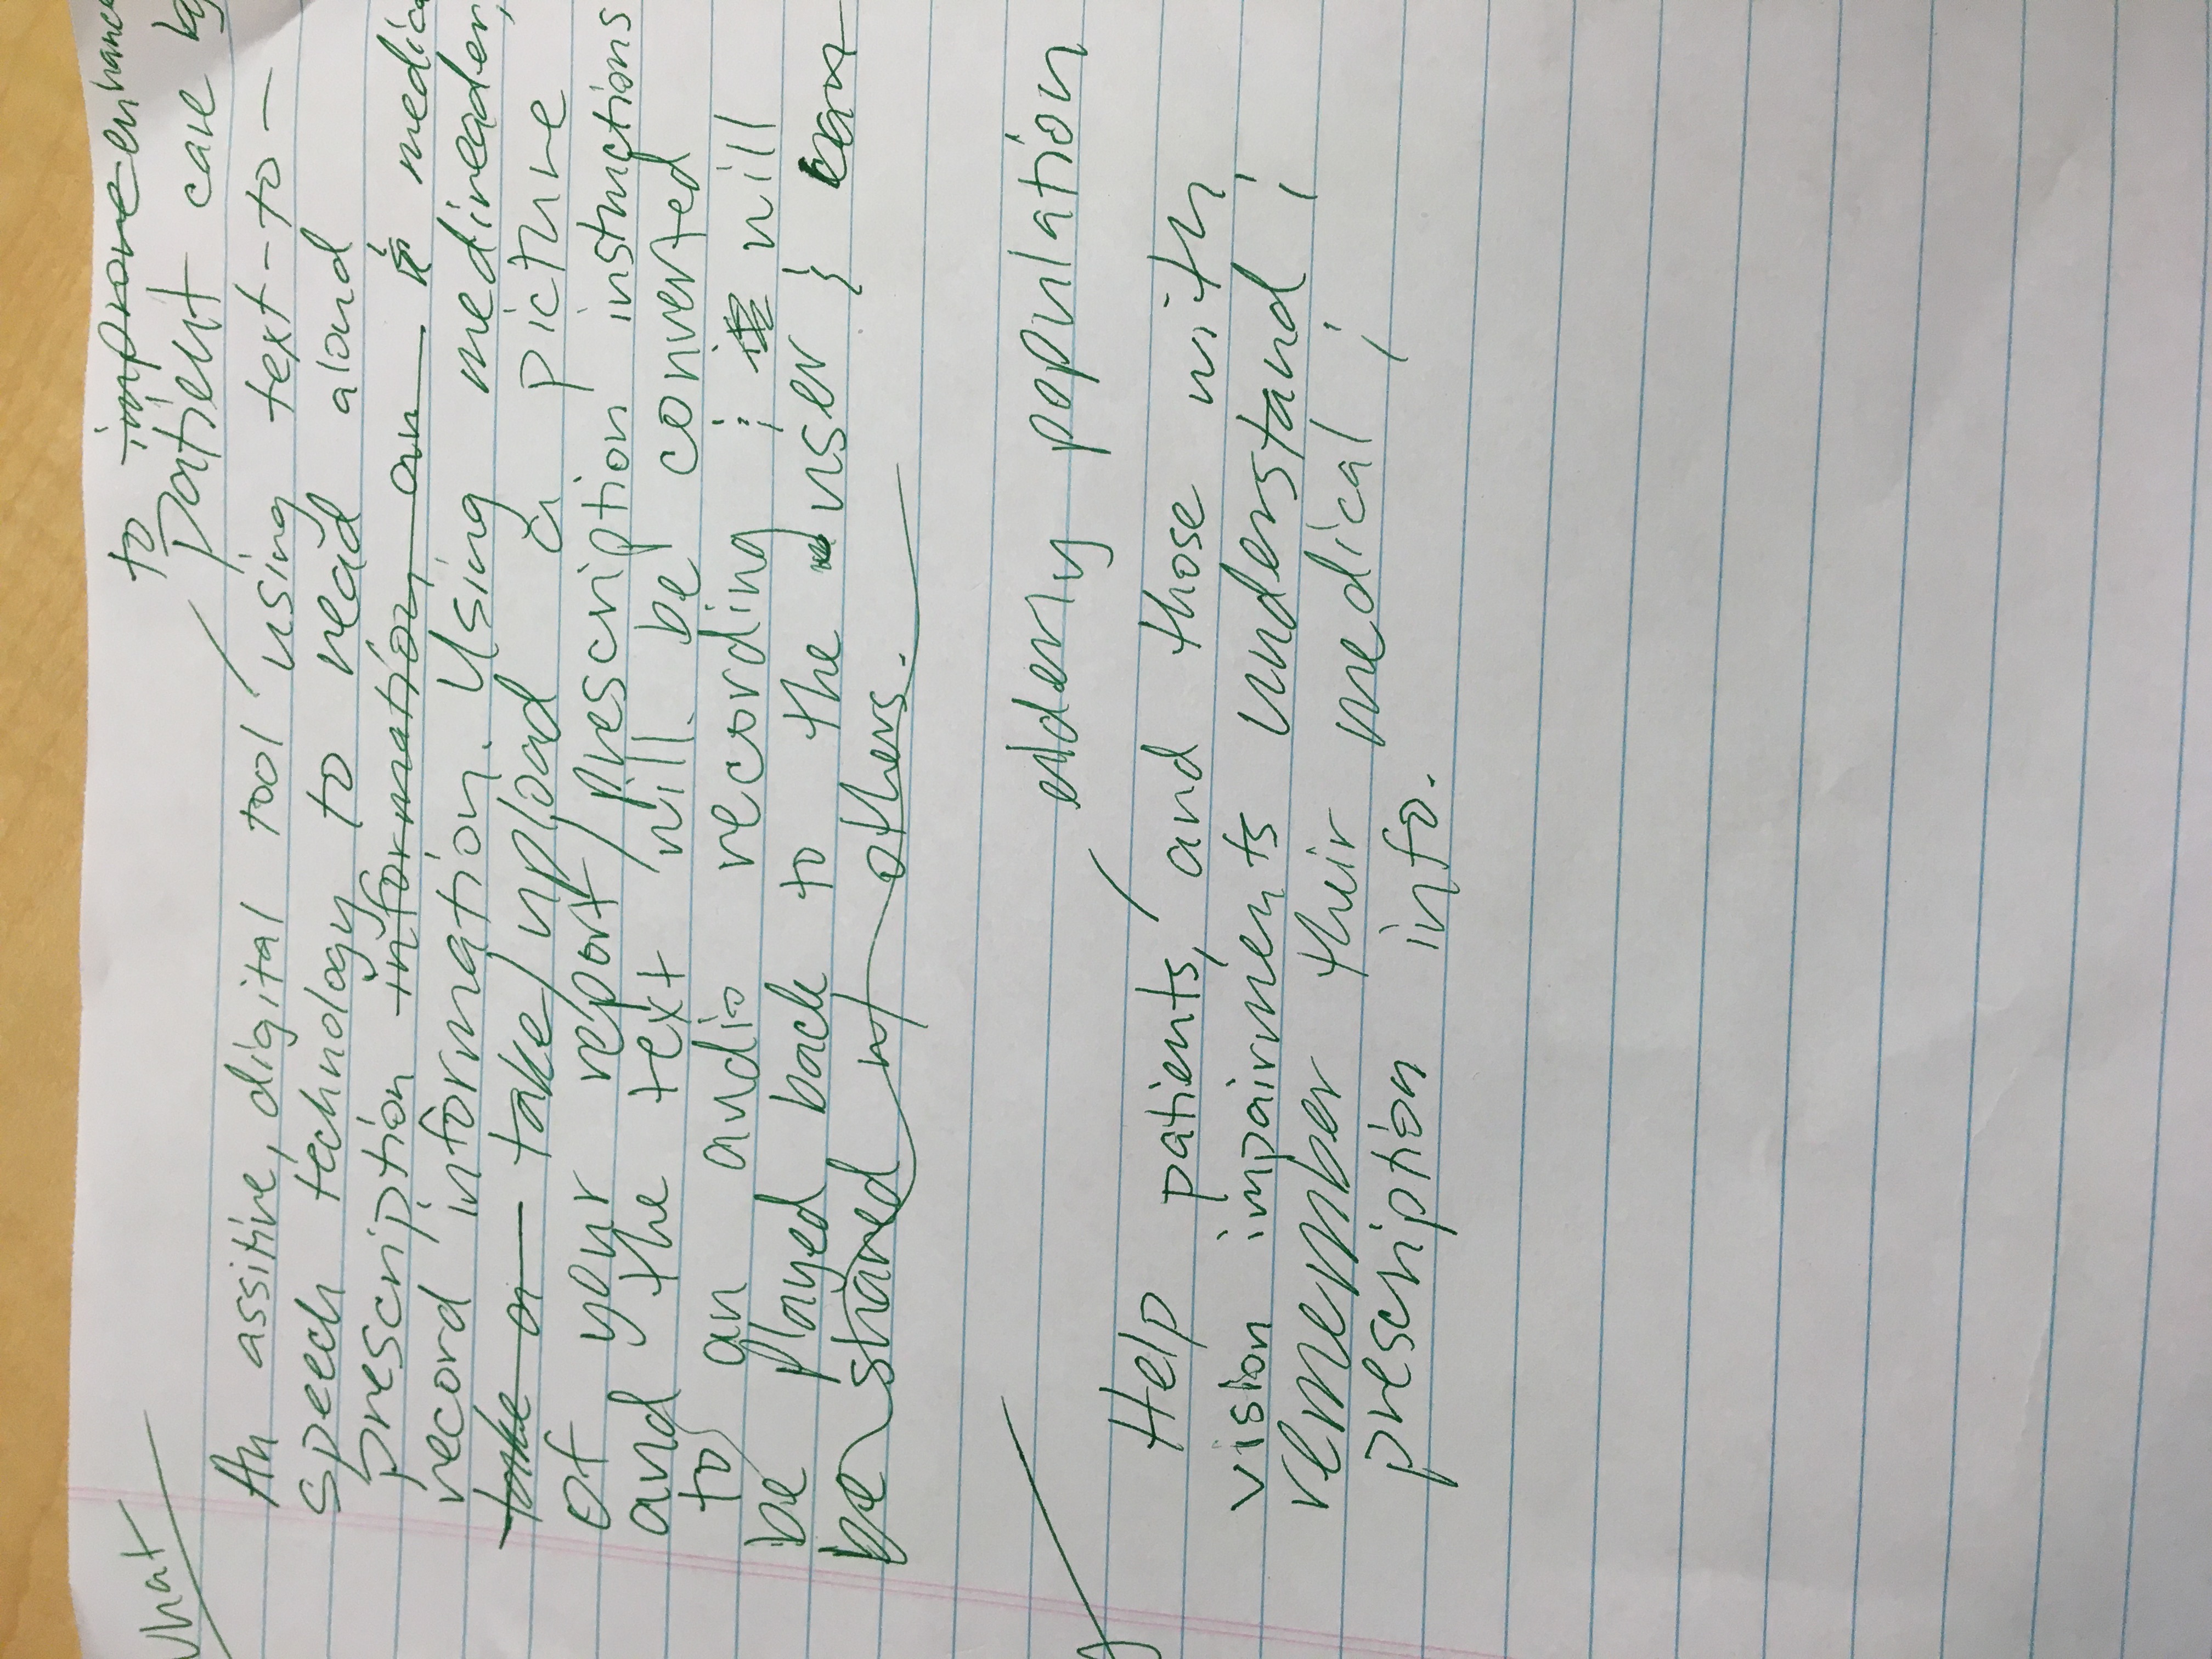 What
to improve enhance
patient care by
An assitive, digital tool using text-to-
speech technology to read aloud
prescription information an & medica
record information. Using medireader,
take a take/upload a picture
of your report/prescription instructions
and the text will be converted
to an audio recording & will
be played back to the user & can
be shared w/ others.
elderly population
Help patients, and those with
vision impairments understand &
remember their medical &
prescription info.